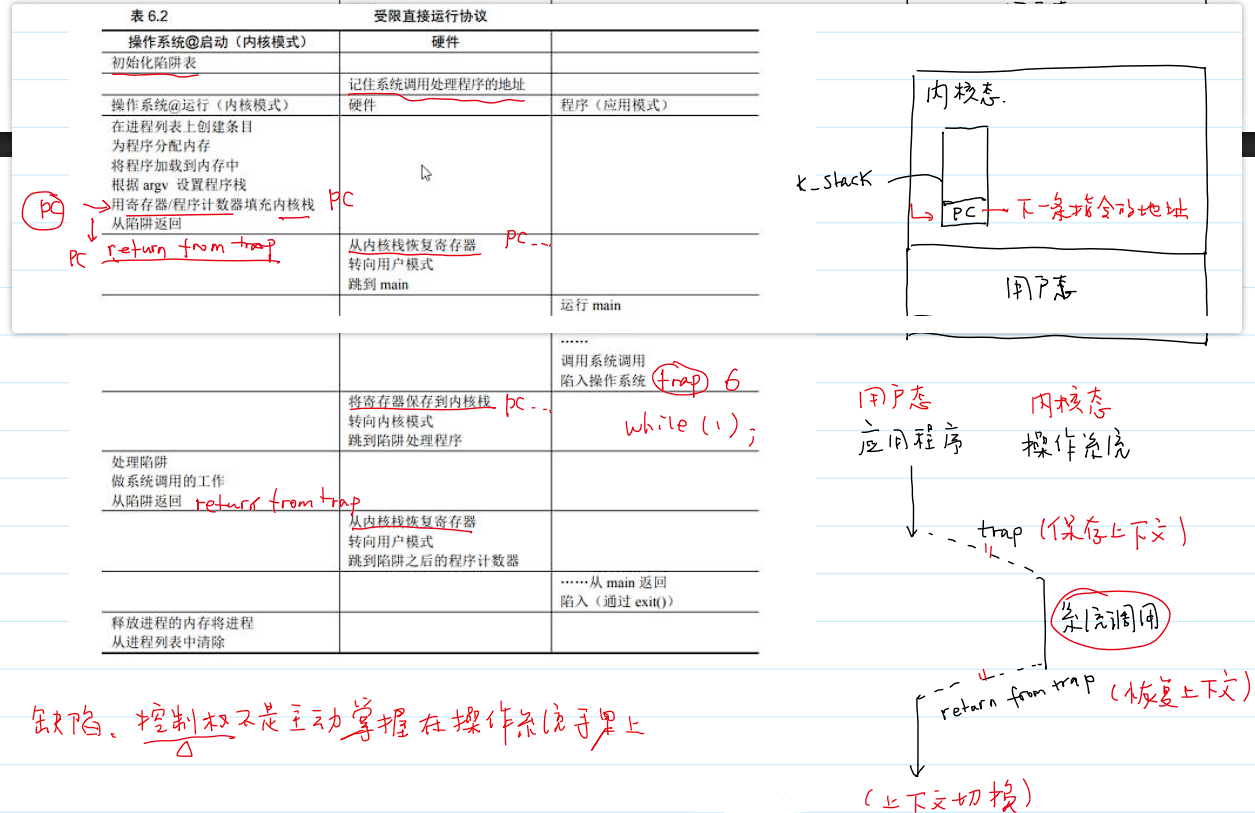 表 6.2 受限直接运行协议
操作系统@启动（内核模式） 硬件
初始化陷阱表
记住系统调用处理程序的地址
操作系统@运行（内核模式） 硬件 程序（应用模式）
在进程列表上创建条目
为程序分配内存
将程序加载到内存中
根据 argv 设置程序栈
PC 用寄存器/程序计数器填充内核栈 PC
从陷阱返回
PC return from trap
从内核栈恢复寄存器 PC...
转向用户模式
跳到 main
运行 main
……
调用系统调用
陷入操作系统 trap 6
将寄存器保存到内核栈 PC...
转向内核模式
跳到陷阱处理程序
while (1);
处理陷阱
做系统调用的工作
从陷阱返回 return from trap
从内核栈恢复寄存器
转向用户模式
跳到陷阱之后的程序计数器
……从 main 返回
陷入（通过 exit()）
释放进程的内存将进程
从进程列表中清除
缺陷. 控制权不是主动掌握在操作系统手里上
内核态.
k_stack
PC 下一条指令的地址
用户态
用户态 内核态
应用程序 操作系统
trap (保存上下文)
系统调用
return from trap (恢复上下文)
(上下文切换)